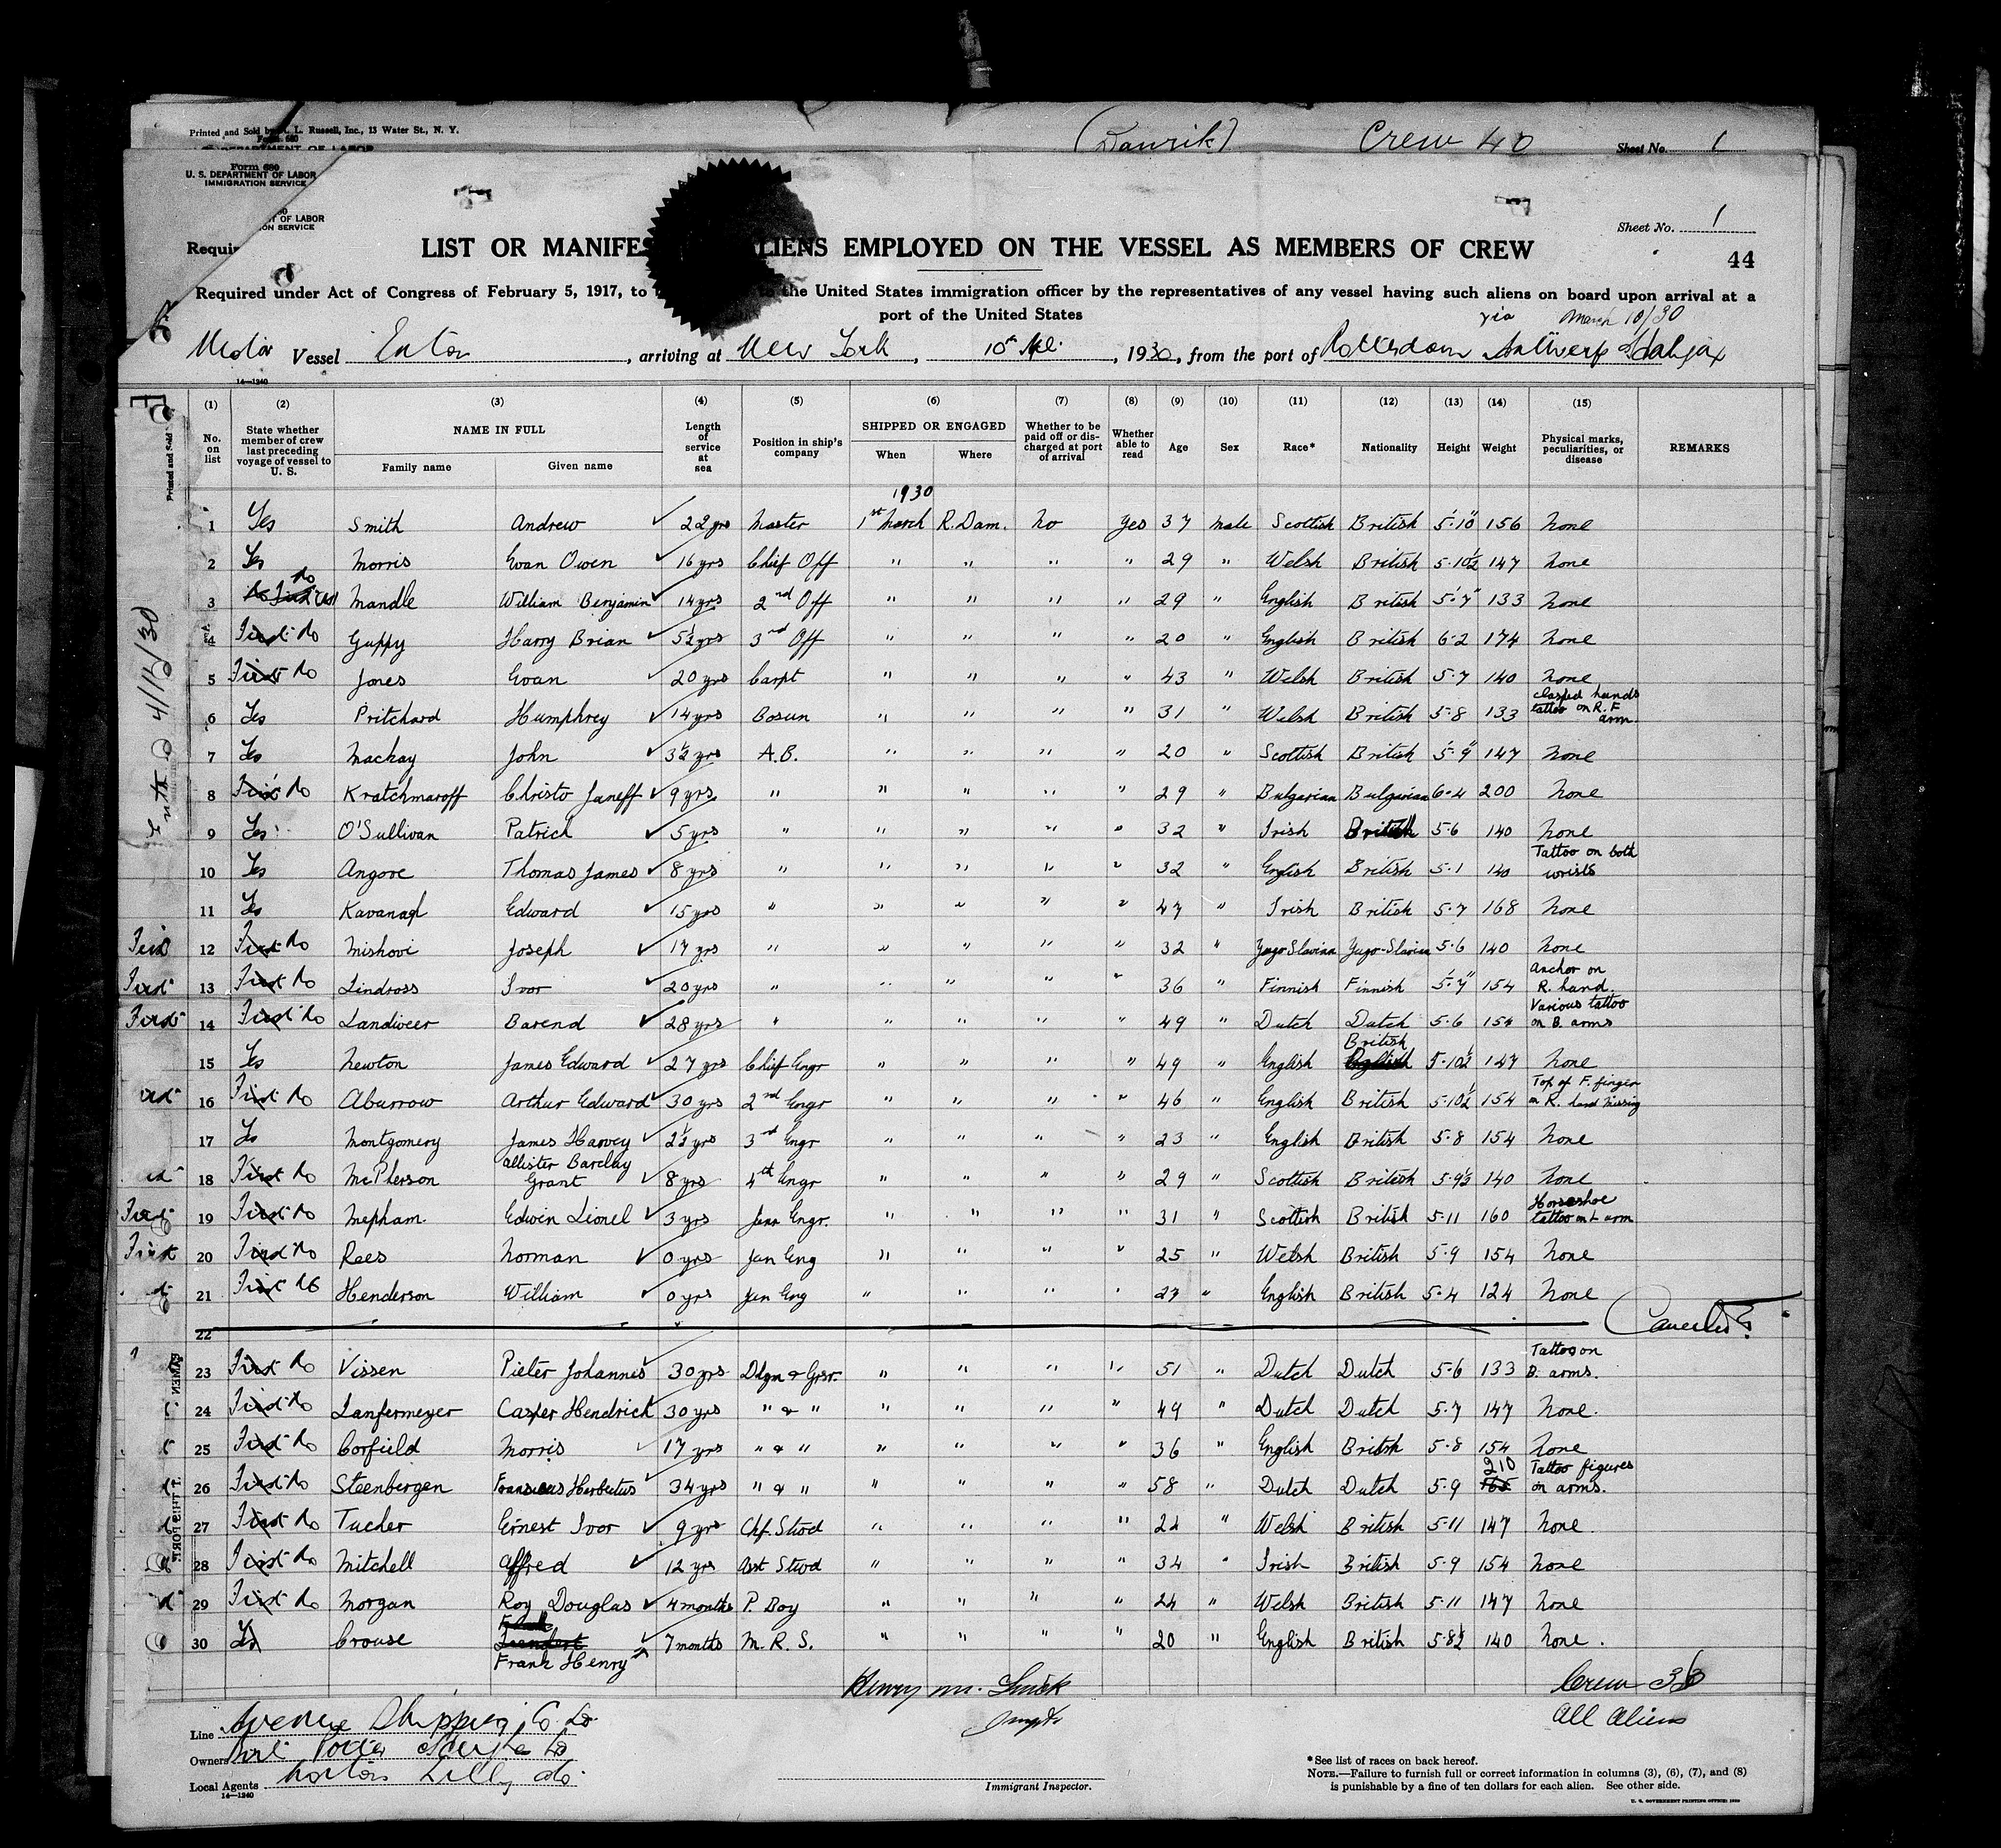 Printed and Sold by L. Russell, Inc., 13 Water St., N. Y.
(Danrik) Crew 40 Sheet No. 1
Form 680
U. S. DEPARTMENT OF LABOR
IMMIGRATION SERVICE
Sheet No. 1
LIST OR MANIFES ALIENS EMPLOYED ON THE VESSEL AS MEMBERS OF CREW
44
Required under Act of Congress of February 5, 1917, to the United States immigration officer by the representatives of any vessel having such aliens on board upon arrival at a
port of the United States
via March 10/30
Motor Vessel , arriving at New York, 10th , 1930, from the port of Rotterdam Antwerp Halifax
14—1240
(1) (2) (3) (4) (5) (6) (7) (8) (9) (10) (11) (12) (13) (14) (15)
No. on list State whether member of crew last preceding voyage of vessel to U. S. NAME IN FULL Family name Given name Length of service at sea Position in ship's company SHIPPED OR ENGAGED When Where Whether to be paid off or discharged at port of arrival Whether able to read Age Sex Race* Nationality Height Weight Physical marks, peculiarities, or disease REMARKS
1930
1 Yes Smith Andrew 22 yrs Master 1st March R. Dam. No Yes 37 Male Scottish British 5'10" 156 None
2 Yes Morris Evan Owen 16 yrs Chief Off " " " " 29 " Welsh British 5-10½ 147 None
3 No Mandle William Benjamin 14 yrs 2nd Off " " " " 29 " English British 5'7" 133 None
4 First No Guppy Harry Brian 5½ yrs 3rd Off " " " " 20 " English British 6-2 174 None
5 First No Jones Evan 20 yrs Carpt " " " " 43 " Welsh British 5-7 140 None
6 Yes Pritchard Humphrey 14 yrs Bosun " " " " 31 " Welsh British 5-8 133 Clasped hands tattoo on R. F arm
7 Yes Mackay John 3½ yrs A.B. " " " " 20 " Scottish British 5'-9" 147 None
8 First No Kratchmaroff Christo Janeff 9 yrs " " " " " 29 " Bulgarian Bulgarian 6-4 200 None
9 Yes O'Sullivan Patrick 5 yrs " " " " " 32 " Irish British 5-6 140 None
10 Yes Angove Thomas James 8 yrs " " " " " 32 " English British 5-1 140 Tattoo on both wrists
11 Yes Kavanagh Edward 15 yrs " " " " " 47 " Irish British 5-7 168 None
12 First No Mishovi Joseph 17 yrs " " " " " 32 " Yugo-Slavian Yugo-Slavian 5-6 140 None
13 First No Lindross Ivor 20 yrs " " " " " 36 " Finnish Finnish 5'-7" 154 Anchor on R. hand.
14 First No Landweer Barend 28 yrs " " " " " 49 " Dutch Dutch 5-6 154 Various tattoo on B. arms
15 Yes Newton James Edward 27 yrs Chief Engr " " " " 49 " English British 5-10½ 147 None
16 First No Aburrow Arthur Edward 30 yrs 2nd Engr " " " " 46 " English British 5-10½ 154 Top of F. finger on R. hand missing
17 Yes Montgomery James Harvey 2½ yrs 3rd Engr " " " " 23 " English British 5-8 154 None
18 First No McPherson Allister Barclay Grant 8 yrs 4th Engr " " " " 29 " Scottish British 5-9½ 140 None
19 First No Mepham Edwin Lionel 3 yrs Junr Engr. " " " " 31 " Scottish British 5-11 160 Horseshoe tattoo on L arm
20 First No Rees Norman 0 yrs Jun Eng " " " " 25 " Welsh British 5-9 154 None
21 First No Henderson William 0 yrs Jun Eng " " " " 27 " English British 5-4 124 None
22 Cancelled
23 First No Vissen Pieter Johannes 30 yrs Dkyn & Grsr. " " " " 51 " Dutch Dutch 5-6 133 Tattoo on B. arms.
24 First No Lanfermeyer Casper Hendrick 30 yrs " & " " " " " 49 " Dutch Dutch 5-7 147 None.
25 First No Corfield Morris 17 yrs " & " " " " " 36 " English British 5-8 154 None
26 First No Steenbergen Fransicus Herbertus 34 yrs " & " " " " " 58 " Dutch Dutch 5-9 210 Tattoo figures on arms.
27 First No Tucker Ernest Ivor 9 yrs Chf. Stwd " " " " 22 " Welsh British 5-11 147 None
28 First No Mitchell Alfred 12 yrs Asst Stwd " " " " 34 " Irish British 5-9 154 None
29 First No Morgan Roy Douglas 4 months P. Boy " " " " 24 " Welsh British 5-11 147 None
30 Yes Crouse Frank Henry 7 months M. R. S. " " " " 20 " English British 5-8½ 140 None.
Crew 36
All Aliens
Line Avenue Shipping Co. Ld.
Owners
Local Agents Norton Lilly Co.
14—1240
Immigrant Inspector.
*See list of races on back hereof.
NOTE.—Failure to furnish full or correct information in columns (3), (6), (7), and (8)
is punishable by a fine of ten dollars for each alien. See other side.
U. S. GOVERNMENT PRINTING OFFICE: 1929